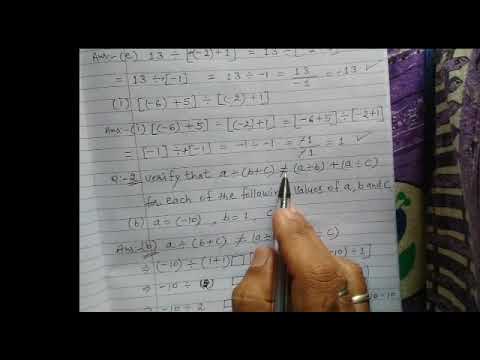 Ans:- (e) 13 ÷ [(-2)+1] = 13 ÷ [-2
= 13 ÷ [-1] = 13 ÷ -1 = 13/-1 = -13 ✓
(i) [(-6) + 5] ÷ [(-2) + 1]
Ans:- (i) [(-6) + 5] ÷ [(-2) + 1] = [-6+5] ÷ [-2+1]
= [-1] ÷ [-1] = -1 ÷ -1 = -1/-1 = 1 ✓
Q:-2 verify that a ÷ (b+c) ≠ (a ÷ b) + (a ÷ c)
for each of the following values of a, b and c.
(b) a = (-10), b = 1, c
Ans:- (b) a ÷ (b+c) ≠ (a ÷ c)
⇒ (-10) ÷ (1+1) -10) ÷ 1]
⇒ -10 ÷ 2
⇒ -10 ÷ 2 -10-10